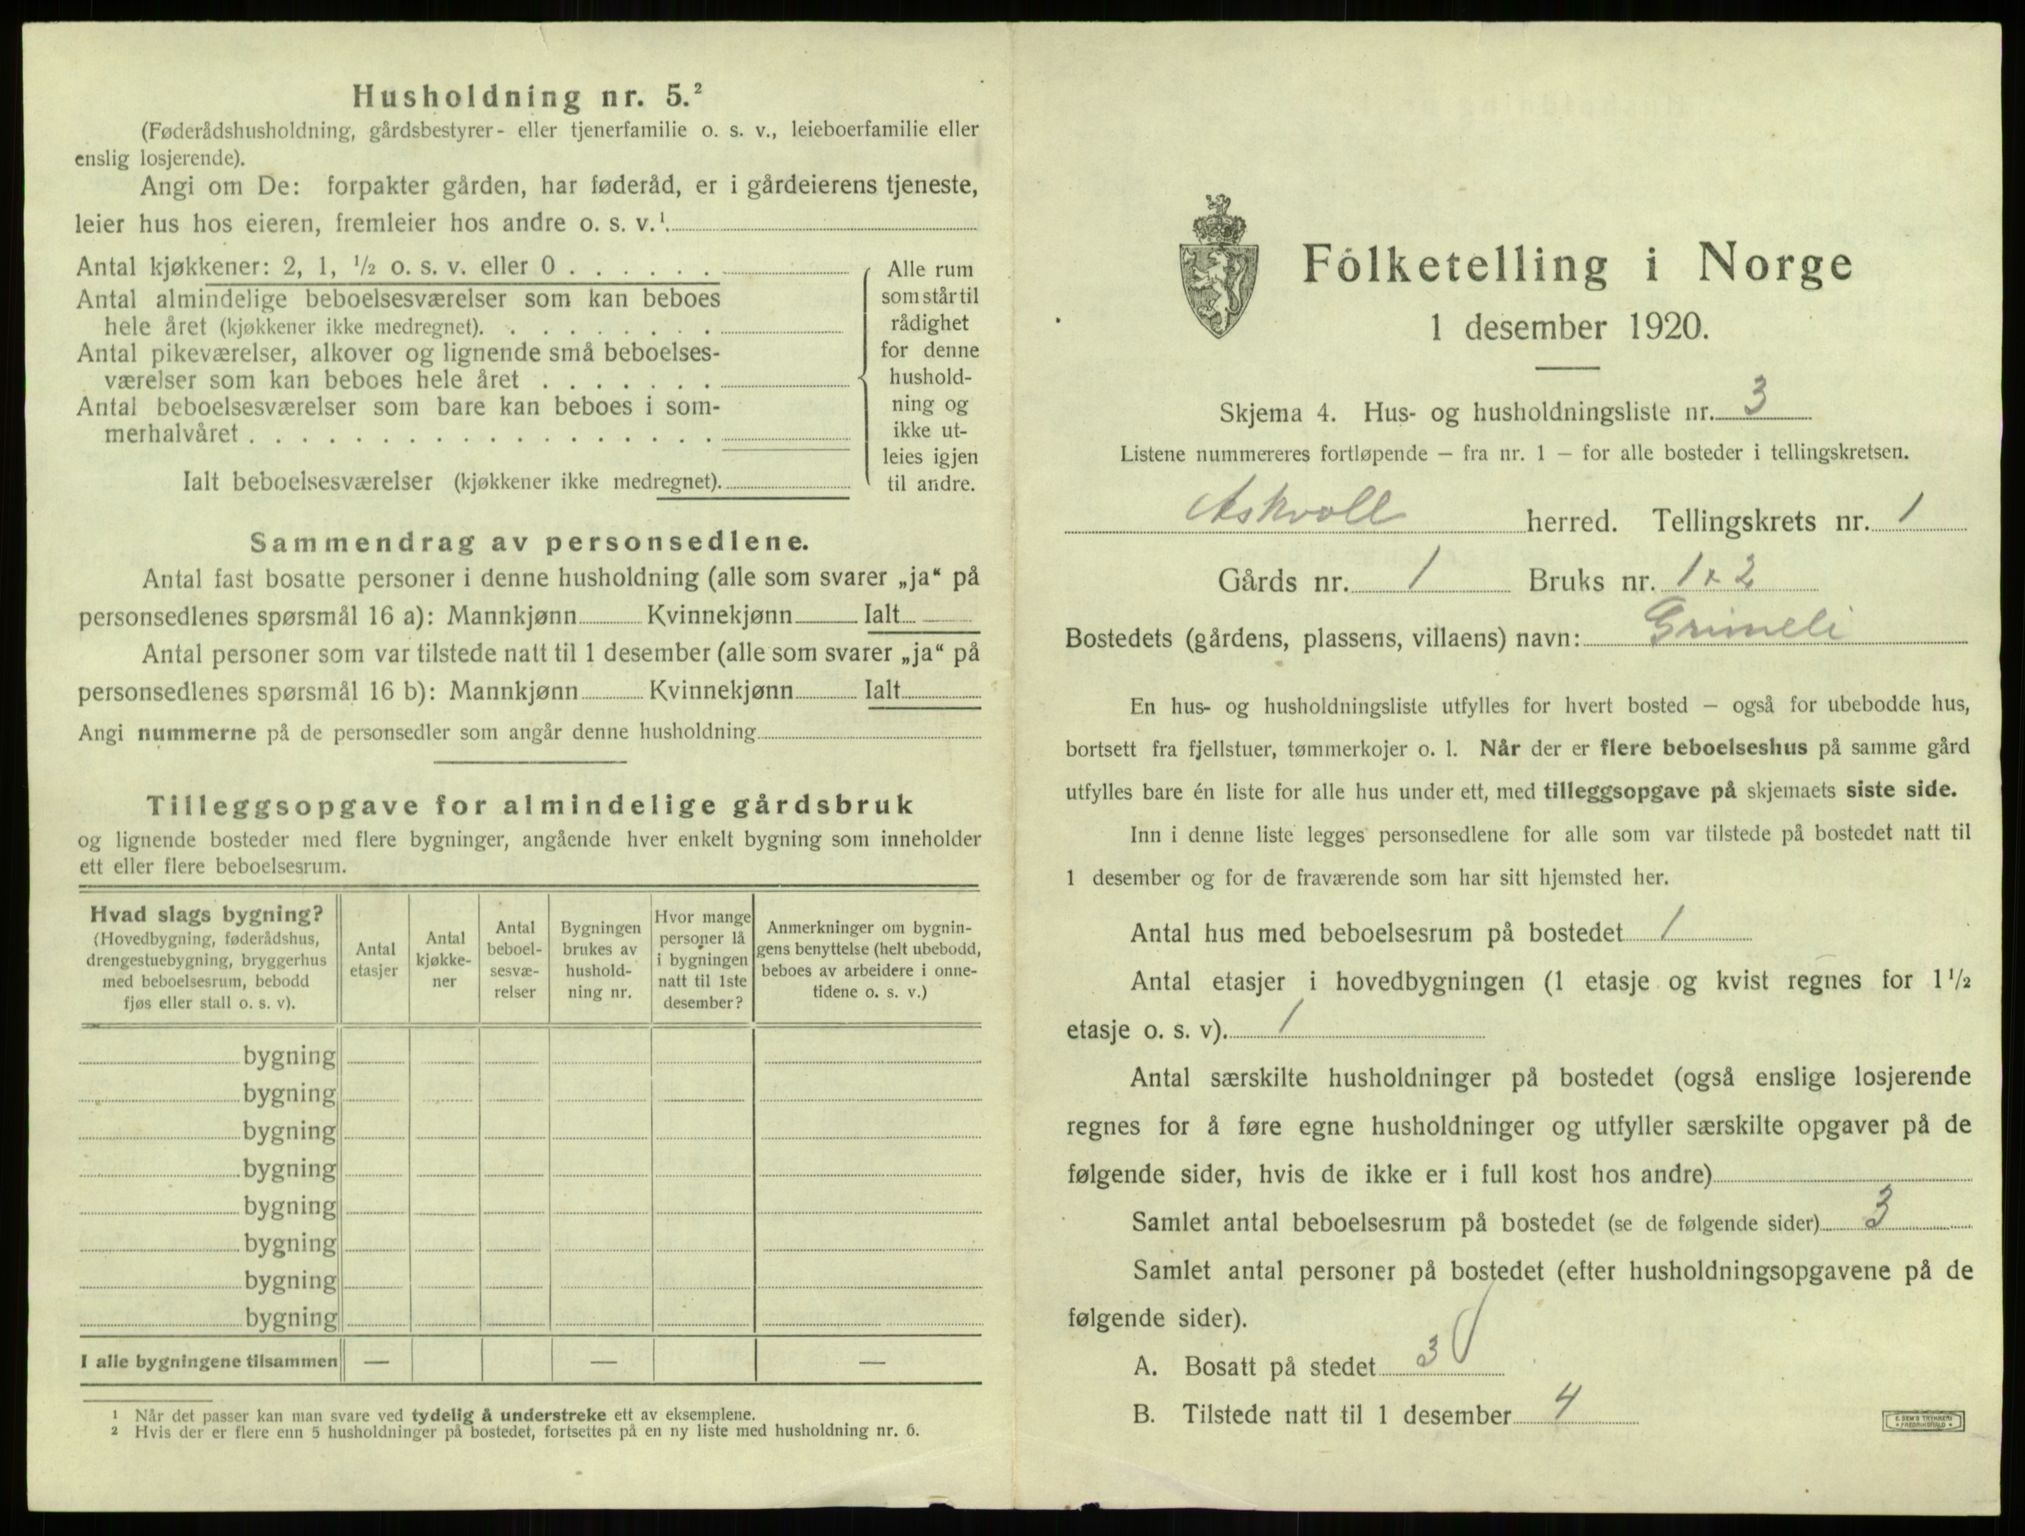 Husholdning nr. 5.²
(Føderådshusholdning, gårdsbestyrer- eller tjenerfamilie o. s. v., leieboerfamilie eller
enslig losjerende).
Angi om De: forpakter gården, har føderåd, er i gårdeierens tjeneste,
leier hus hos eieren, fremleier hos andre o. s. v.¹
Antal kjøkkener: 2, 1, ½ o. s. v. eller 0 . . . . . .
Antal almindelige beboelsesværelser som kan beboes
hele året (kjøkkener ikke medregnet). . . . . . . . .
Antal pikeværelser, alkover og lignende små beboelses-
værelser som kan beboes hele året . . . . . . .
Antal beboelsesværelser som bare kan beboes i som-
merhalvåret . . . . . . . . . . . . . . . . . .
Ialt beboelsesværelser (kjøkkener ikke medregnet).
Alle rum
som står til
rådighet
for denne
hushold-
ning og
ikke ut-
leies igjen
til andre.
Sammendrag av personsedlene.
Antal fast bosatte personer i denne husholdning (alle som svarer „ja“ på
personsedlenes spørsmål 16 a): Mannkjønn Kvinnekjønn Ialt
Antal personer som var tilstede natt til 1 desember (alle som svarer „ja“ på
personsedlenes spørsmål 16 b): Mannkjønn Kvinnekjønn Ialt
Angi nummerne på de personsedler som angår denne husholdning
Tilleggsopgave for almindelige gårdsbruk
og lignende bosteder med flere bygninger, angående hver enkelt bygning som inneholder
ett eller flere beboelsesrum.
Hvad slags bygning?
(Hovedbygning, føderådshus,
drengestuebygning, bryggerhus
med beboelsesrum, bebodd
fjøs eller stall o. s. v).
Antal
etasjer
Antal
kjøkke-
ner
Antal
beboel-
sesvæ-
relser
Bygningen
brukes av
hushold-
ning nr.
Hvor mange
personer lå
i bygningen
natt til 1ste
desember?
Anmerkninger om bygnin-
gens benyttelse (helt ubebodd,
beboes av arbeidere i onne-
tidene o. s. v.)
bygning
bygning
bygning
bygning
bygning
bygning
bygning
bygning
I alle bygningene tilsammen — — —
¹ Når det passer kan man svare ved tydelig å understreke ett av eksemplene.
² Hvis der er flere enn 5 husholdninger på bostedet, fortsettes på en ny liste med husholdning nr. 6.
Folketelling i Norge
1 desember 1920.
Skjema 4. Hus- og husholdningsliste nr. 3
Listene nummereres fortløpende — fra nr. 1 — for alle bosteder i tellingskretsen.
Askvoll herred. Tellingskrets nr. 1
Gårds nr. 1 Bruks nr. 1 + 2
Bostedets (gårdens, plassens, villaens) navn: Grimeli
En hus- og husholdningsliste utfylles for hvert bosted — også for ubebodde hus,
bortsett fra fjellstuer, tømmerkojer o. l. Når der er flere beboelseshus på samme gård
utfylles bare én liste for alle hus under ett, med tilleggsopgave på skjemaets siste side.
Inn i denne liste legges personsedlene for alle som var tilstede på bostedet natt til
1 desember og for de fraværende som har sitt hjemsted her.
Antal hus med beboelsesrum på bostedet 1
Antal etasjer i hovedbygningen (1 etasje og kvist regnes for 1½
etasje o. s. v). 1
Antal særskilte husholdninger på bostedet (også enslige losjerende
regnes for å føre egne husholdninger og utfyller særskilte opgaver på de
følgende sider, hvis de ikke er i full kost hos andre)
Samlet antal beboelsesrum på bostedet (se de følgende sider) 3
Samlet antal personer på bostedet (efter husholdningsopgavene på de
følgende sider).
A. Bosatt på stedet 3
B. Tilstede natt til 1 desember 4